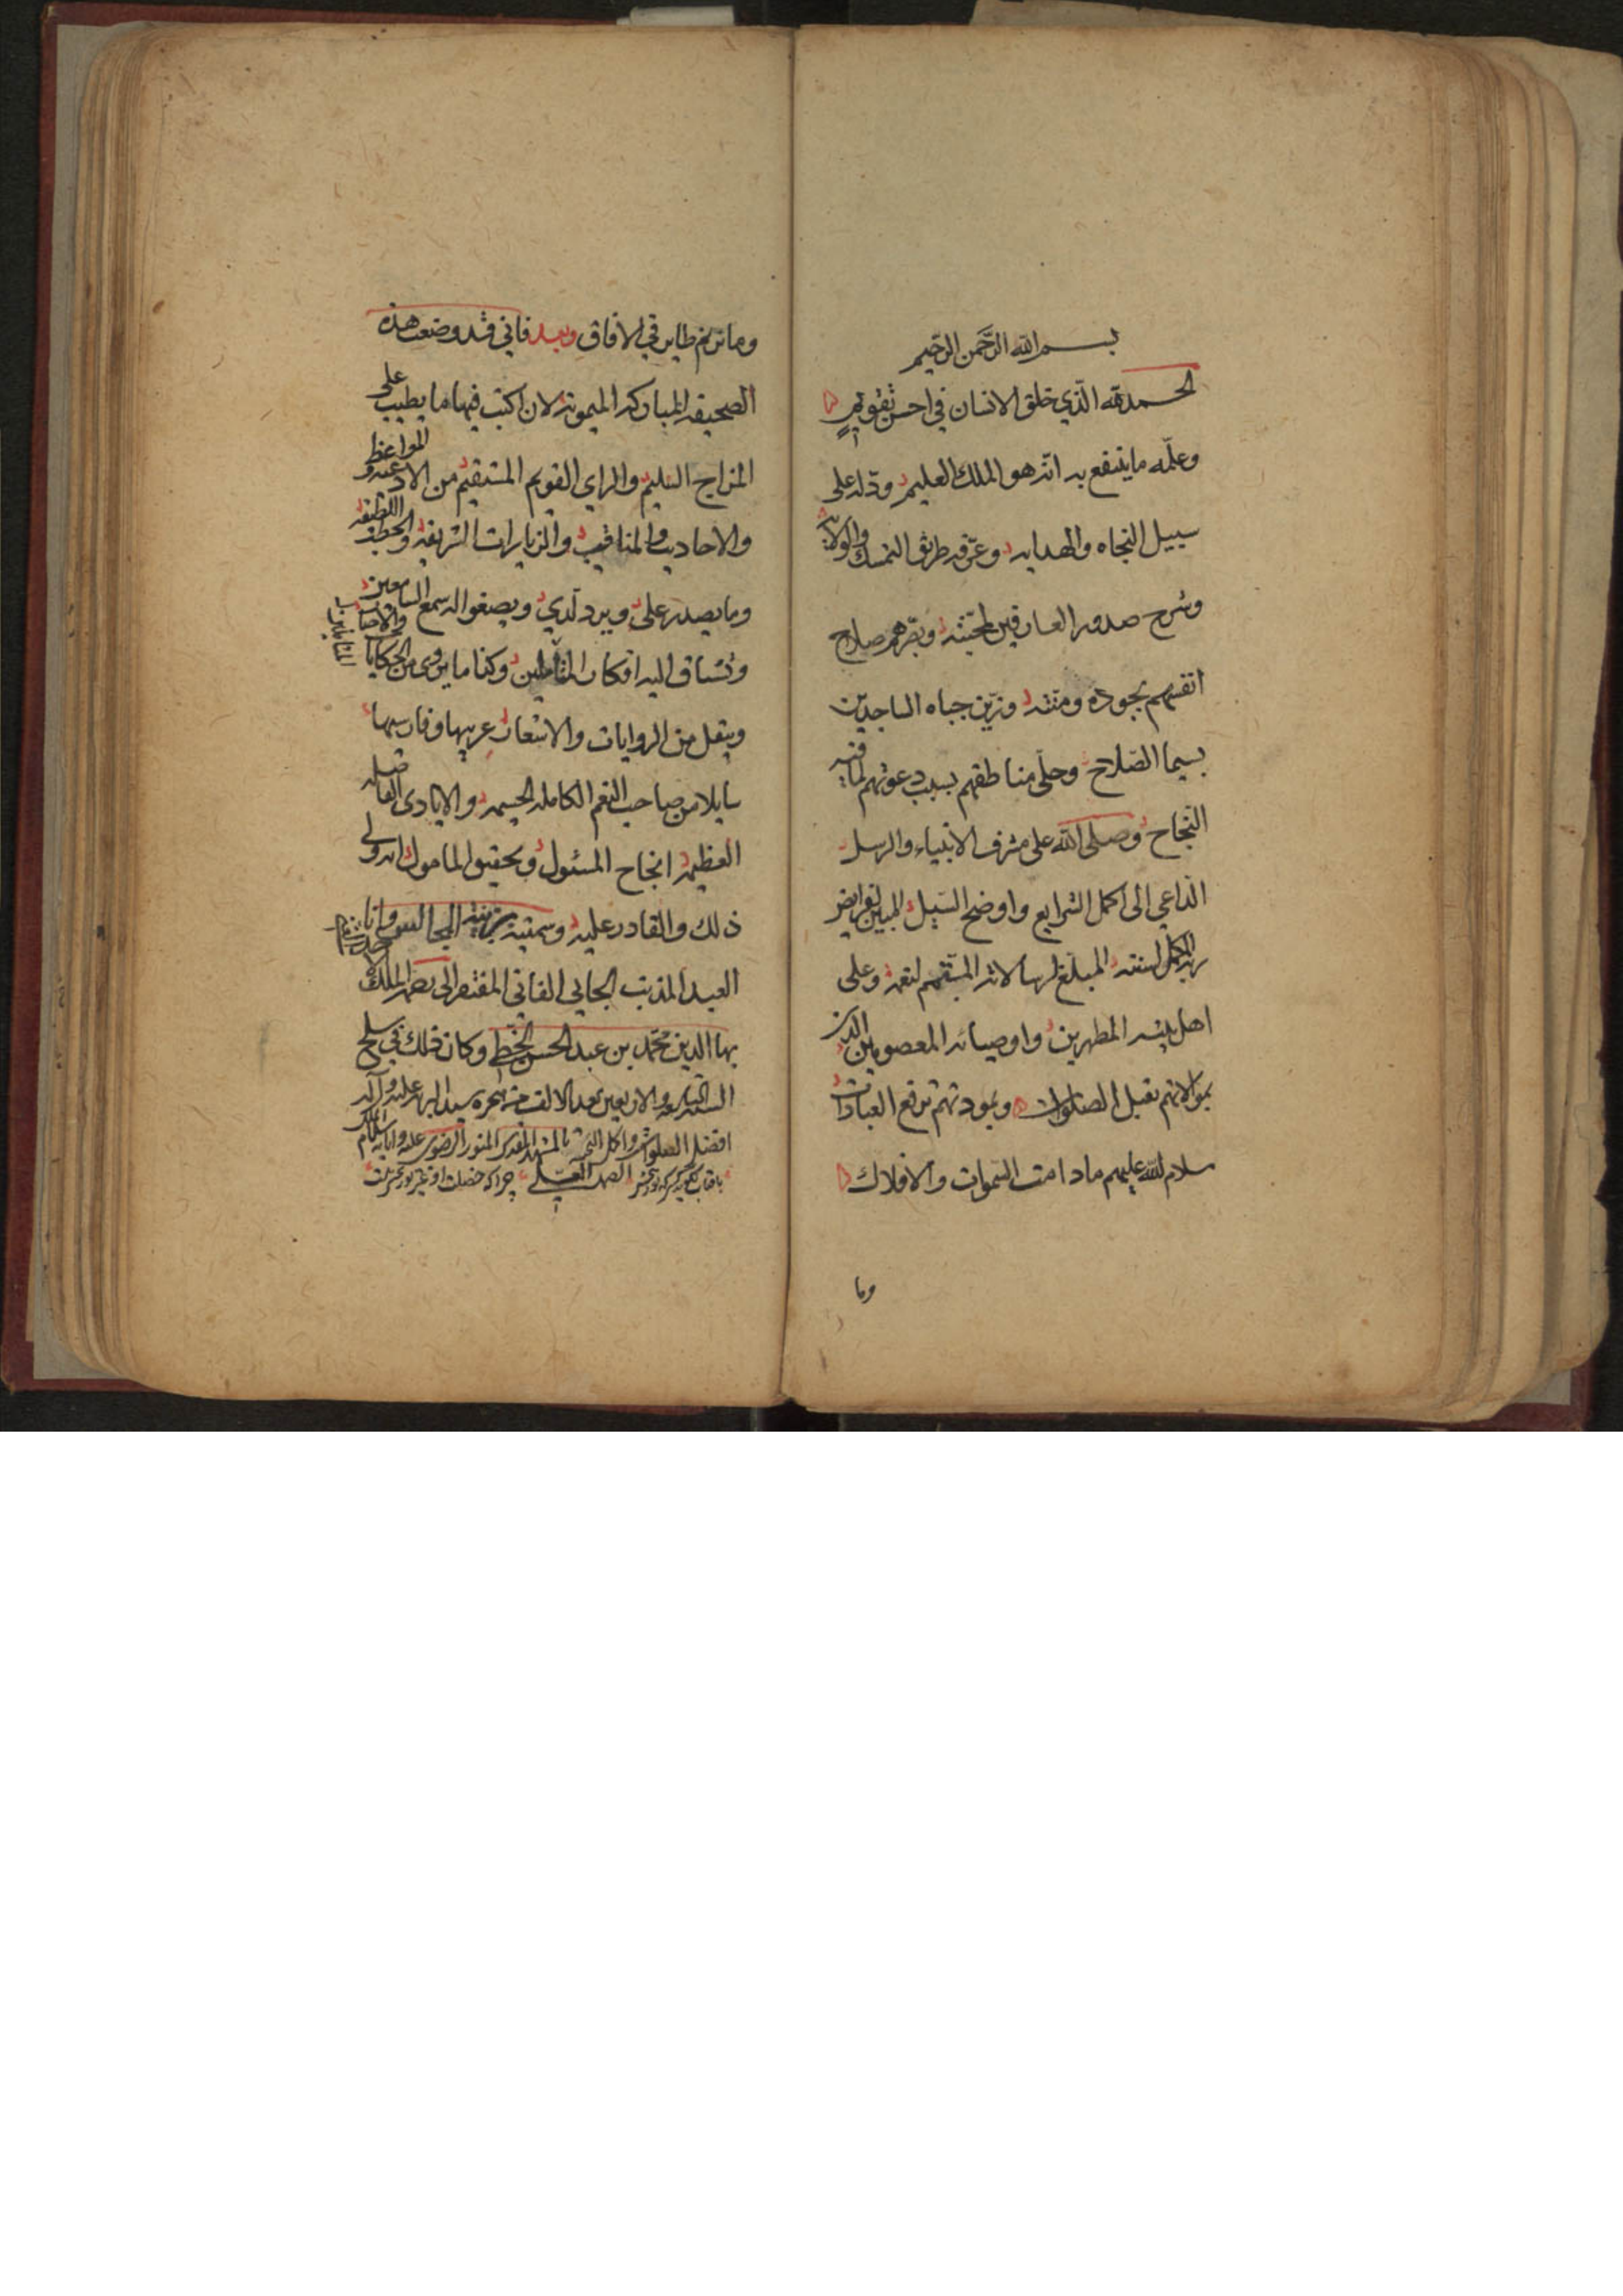 بسم الله الرَّحمن الرّحیم
الحمد لله الّذي خلق الانسان في احسن تقویمٍ
وعلّمه ما ینتفع به انّه هو الملك العلیم ودّله على
سبیل النجاه والهدایه وعرّفه طریق التمسك والولایه
وشرح صدور العارفین لمحبّته وبصّرهم صلاح
انفسهم بجوده ومنّته وزیّن جباه الساجدین
بسیما الصّلاح وحلّى مناطقهم بسبب دعوتهم لما فیه
النجاح وصلى الله على مشرف الانبیاء والرسل
الدّاعي الى اکمل الشرایع واوضح السّبیل المبین لفرایض
ربه المکمل لسنته المبلّغ لرسالاته المتمّم لنعمه وعلى
اهل بیته المطهرین واوصیائه المعصومین الذین
بموالاتهم تقبل الصلوات وبمودتهم ترفع العبادات
سلام الله علیهم مادامت السّموات والافلاك
وما
وما ترنم طایر في الافاق وبعد فاني قد وضعت هذه
الصحیفه المبارکه المیمونه لان اکتب فیها ما یطیب على
المزاج السلیم والراي القویم المستقیم من الادعیه و المواعظ
والاحادیث والمناقب والزیارات الشریفه والخطب اللطیفه
وما یصدر علي ویرد لدي ویصغوا له سمع السامعین
وتشتاق الیه افکار المتأملین وکذا ما یروى من الحکایات
وینقل من الروایات والاشعار عربیها وفارسیها
سایلا من صاحب النعم الکامله الجسیمه والایادى الفاضله
العظیمه انجاح المسئول وتحقیق المامول انه ولي
ذلك والقادر علیه وسمیته بزینة المجالس وانا
العبد المذنب الجاني الفاني المفتقر الى رحمه الملك
بهاالدین محمّد بن عبد الحسن الخطي وکان ذلك في سلخ
السنه التاسعه والاربعین بعد الالف من هجره سید البریه علیه واله
افضل الصلوات واکمل التحیه بالمشهد المقدس المنور الرضوي علیه وابایه سلام الملك